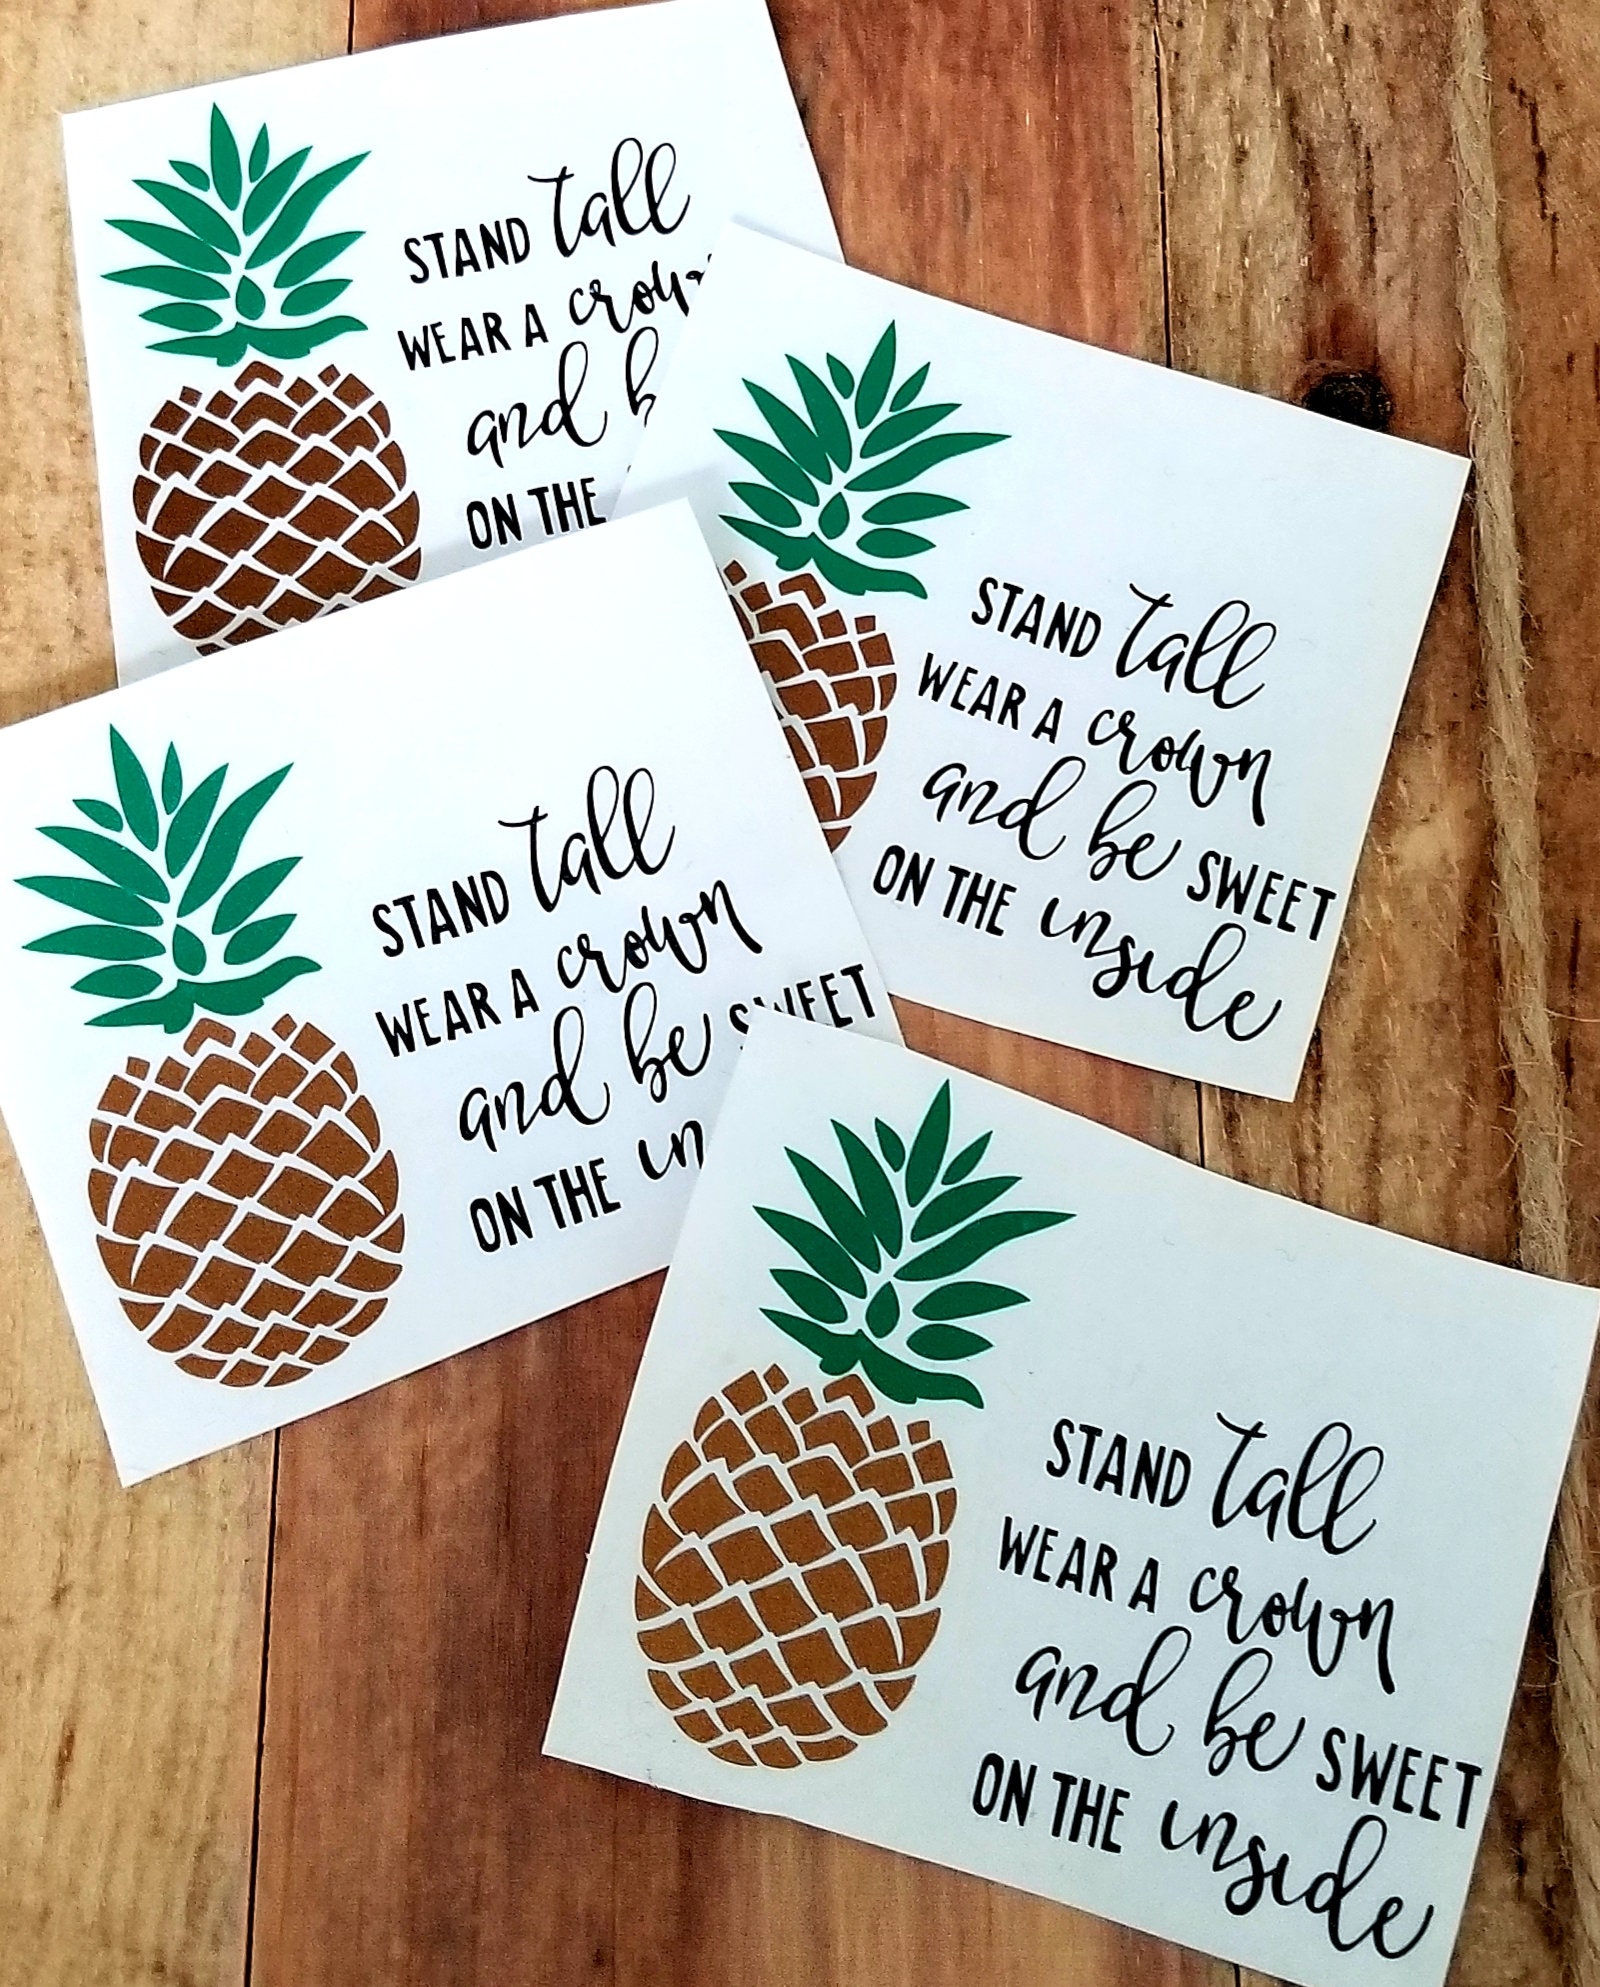 STAND tall
WEAR A crown
and
ON THE
STAND tall
WEAR A crown
and be SWEET
ON THE inside
STAND tall
WEAR A crown
and be SWEET
ON THE
STAND tall
WEAR A crown
and be SWEET
ON THE inside